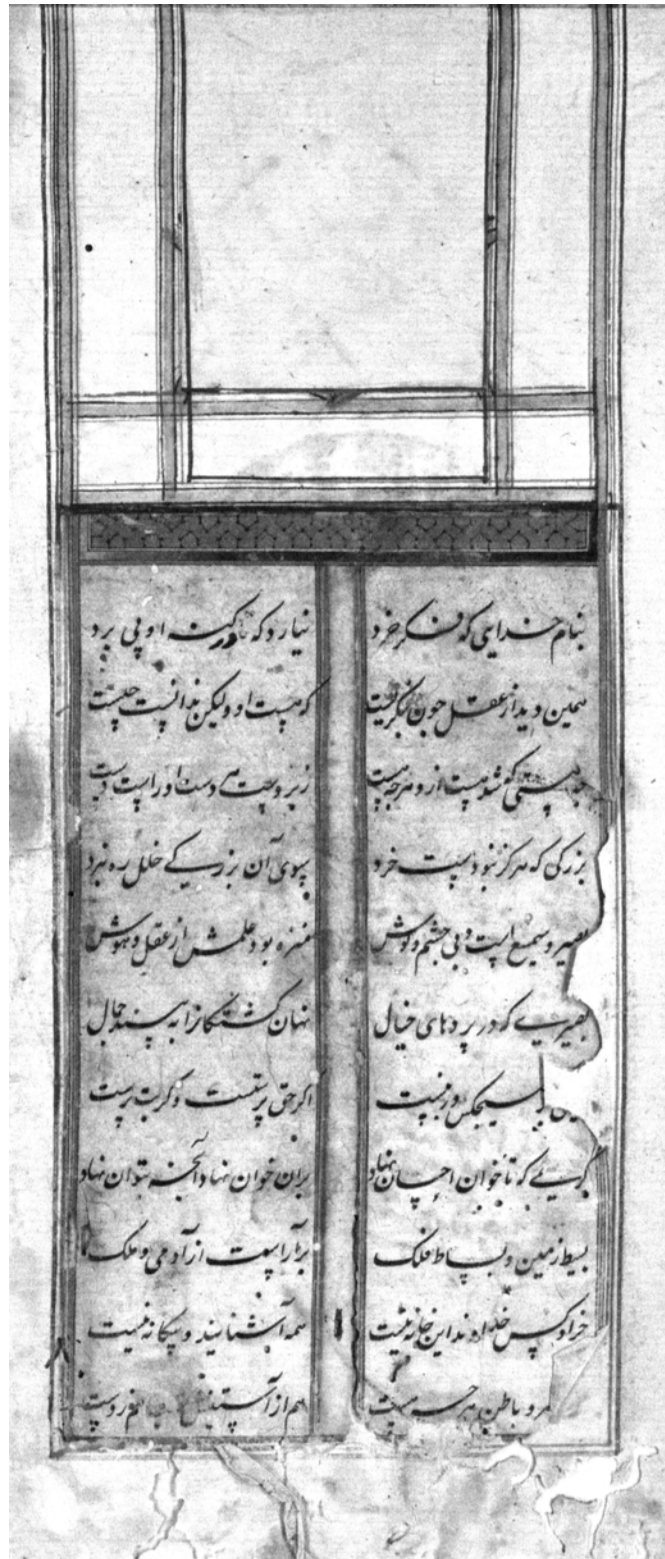 بنام خدایی که فکر خرد نیارد که در کنه او پی برد
همین دید از عقل چون بنگریست که هست او ولیکن ندانست چیست
که شد هست ازو هرچه هست زبردست هر دست او راست دست
بزرگی که هرگز نبودست خرد بسوی آن بزرگی خلل ره نبرد
بصیر و سمیع است و بی چشم و گوش منزه بود علمش از عقل و هوش
بصیری که در پردهای خیال نهان گشتگانرا به بیند جمال
اگر حق پرستست و گر بت پرست
کریمی که تا خوان احسان نهاد بران خوان نهاد آنچه بتوان نهاد
بسیط زمین و بساط فلک برآراست از آدمی و ملک
جز او کس خداوند این خانه نیست همه آشنایند و بیگانه نیست
و باطن هرچه هست هم از